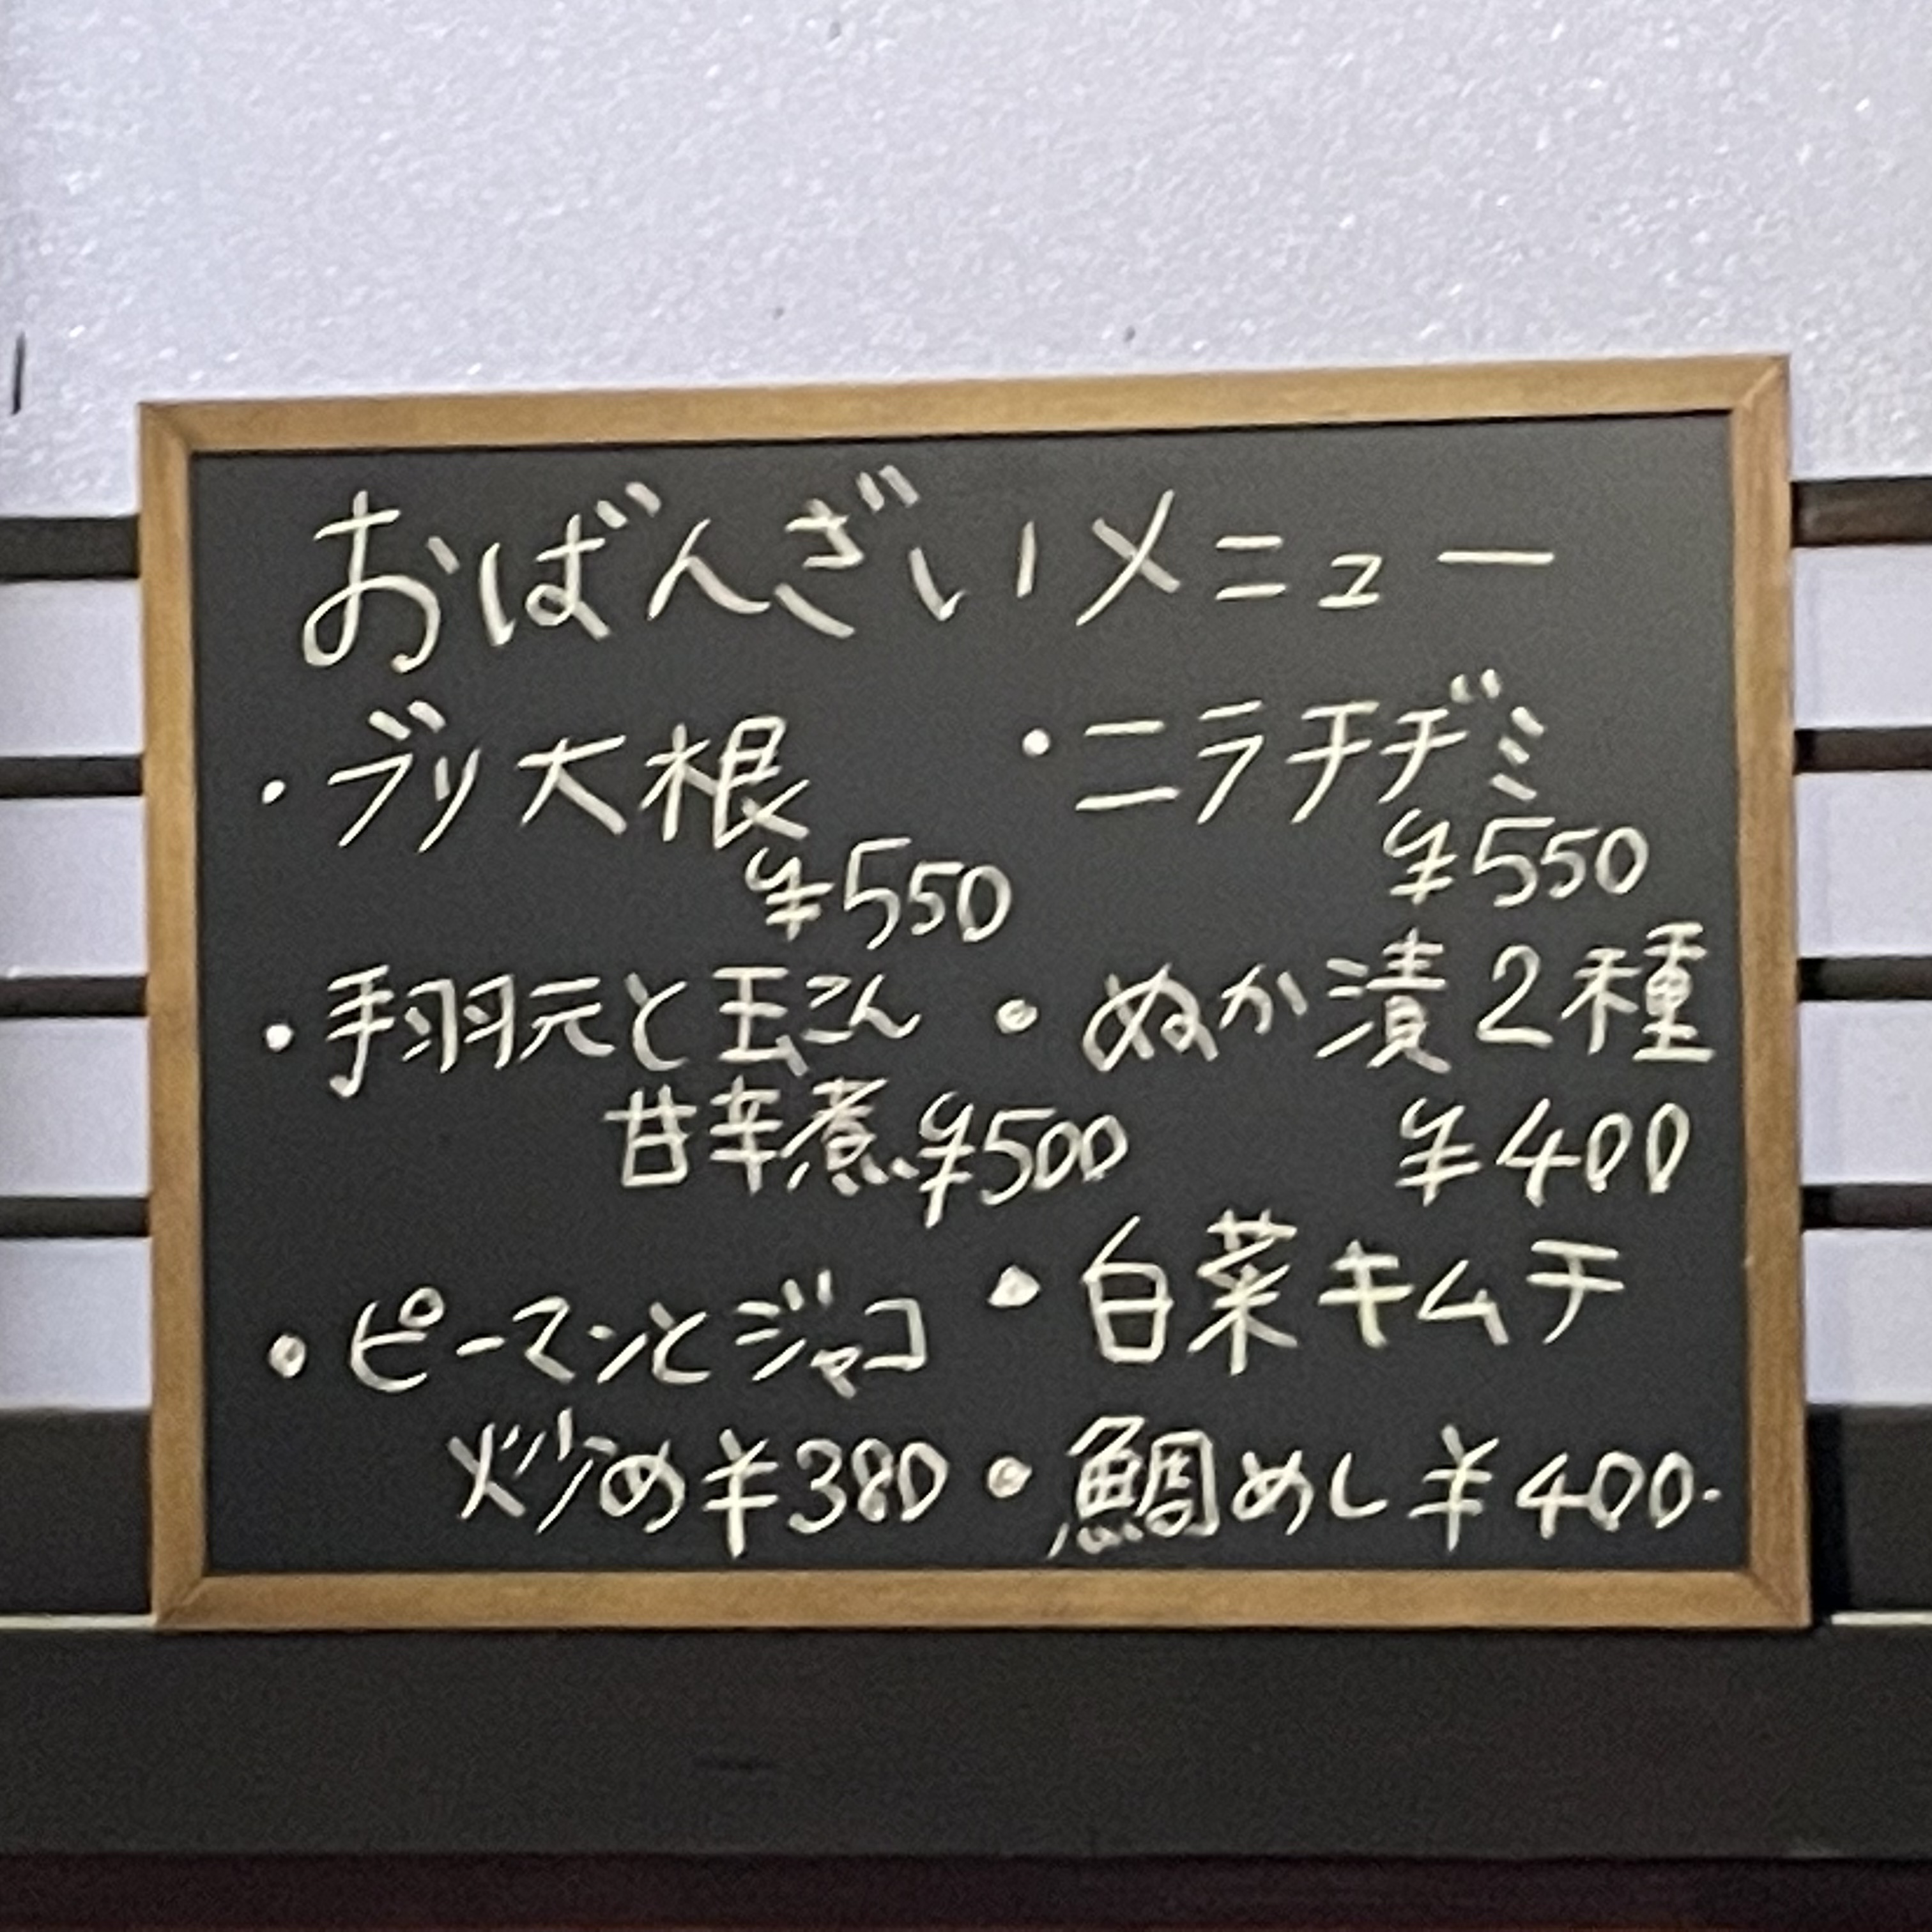 おばんざいメニュー
・ブリ大根
¥550
・手羽元と玉こん
甘辛煮 ¥500
・ピーマンとジャコ
炒め ¥380
・ニラチヂミ
¥550
・ぬか漬2種
¥400
・白菜キムチ
・鯛めし ¥400.